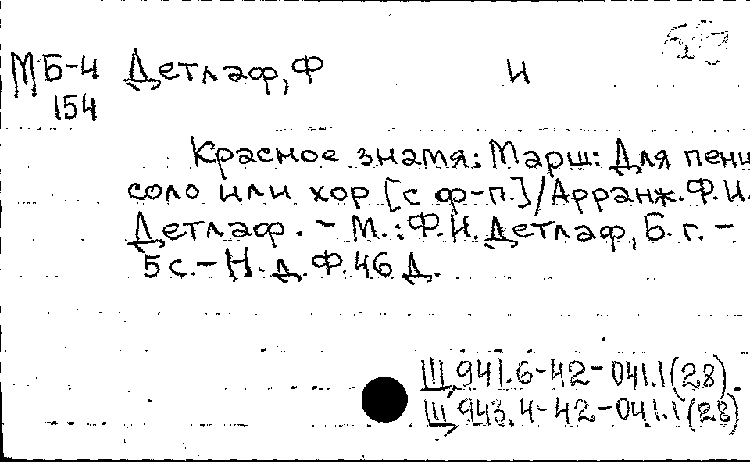 МБ-4 Детлаф, Ф И
154
Красное знамя: Марш: Для пени
соло или хор [с ф-п.]/Арранж. Ф.И.
Детлаф. - М.: Ф.И. Детлаф, Б. г. -
5 с. - Н. д. Ф. 46 Д.
Щ 941.6-42-041.1(28)
Щ 943.4-42-041.1(28)